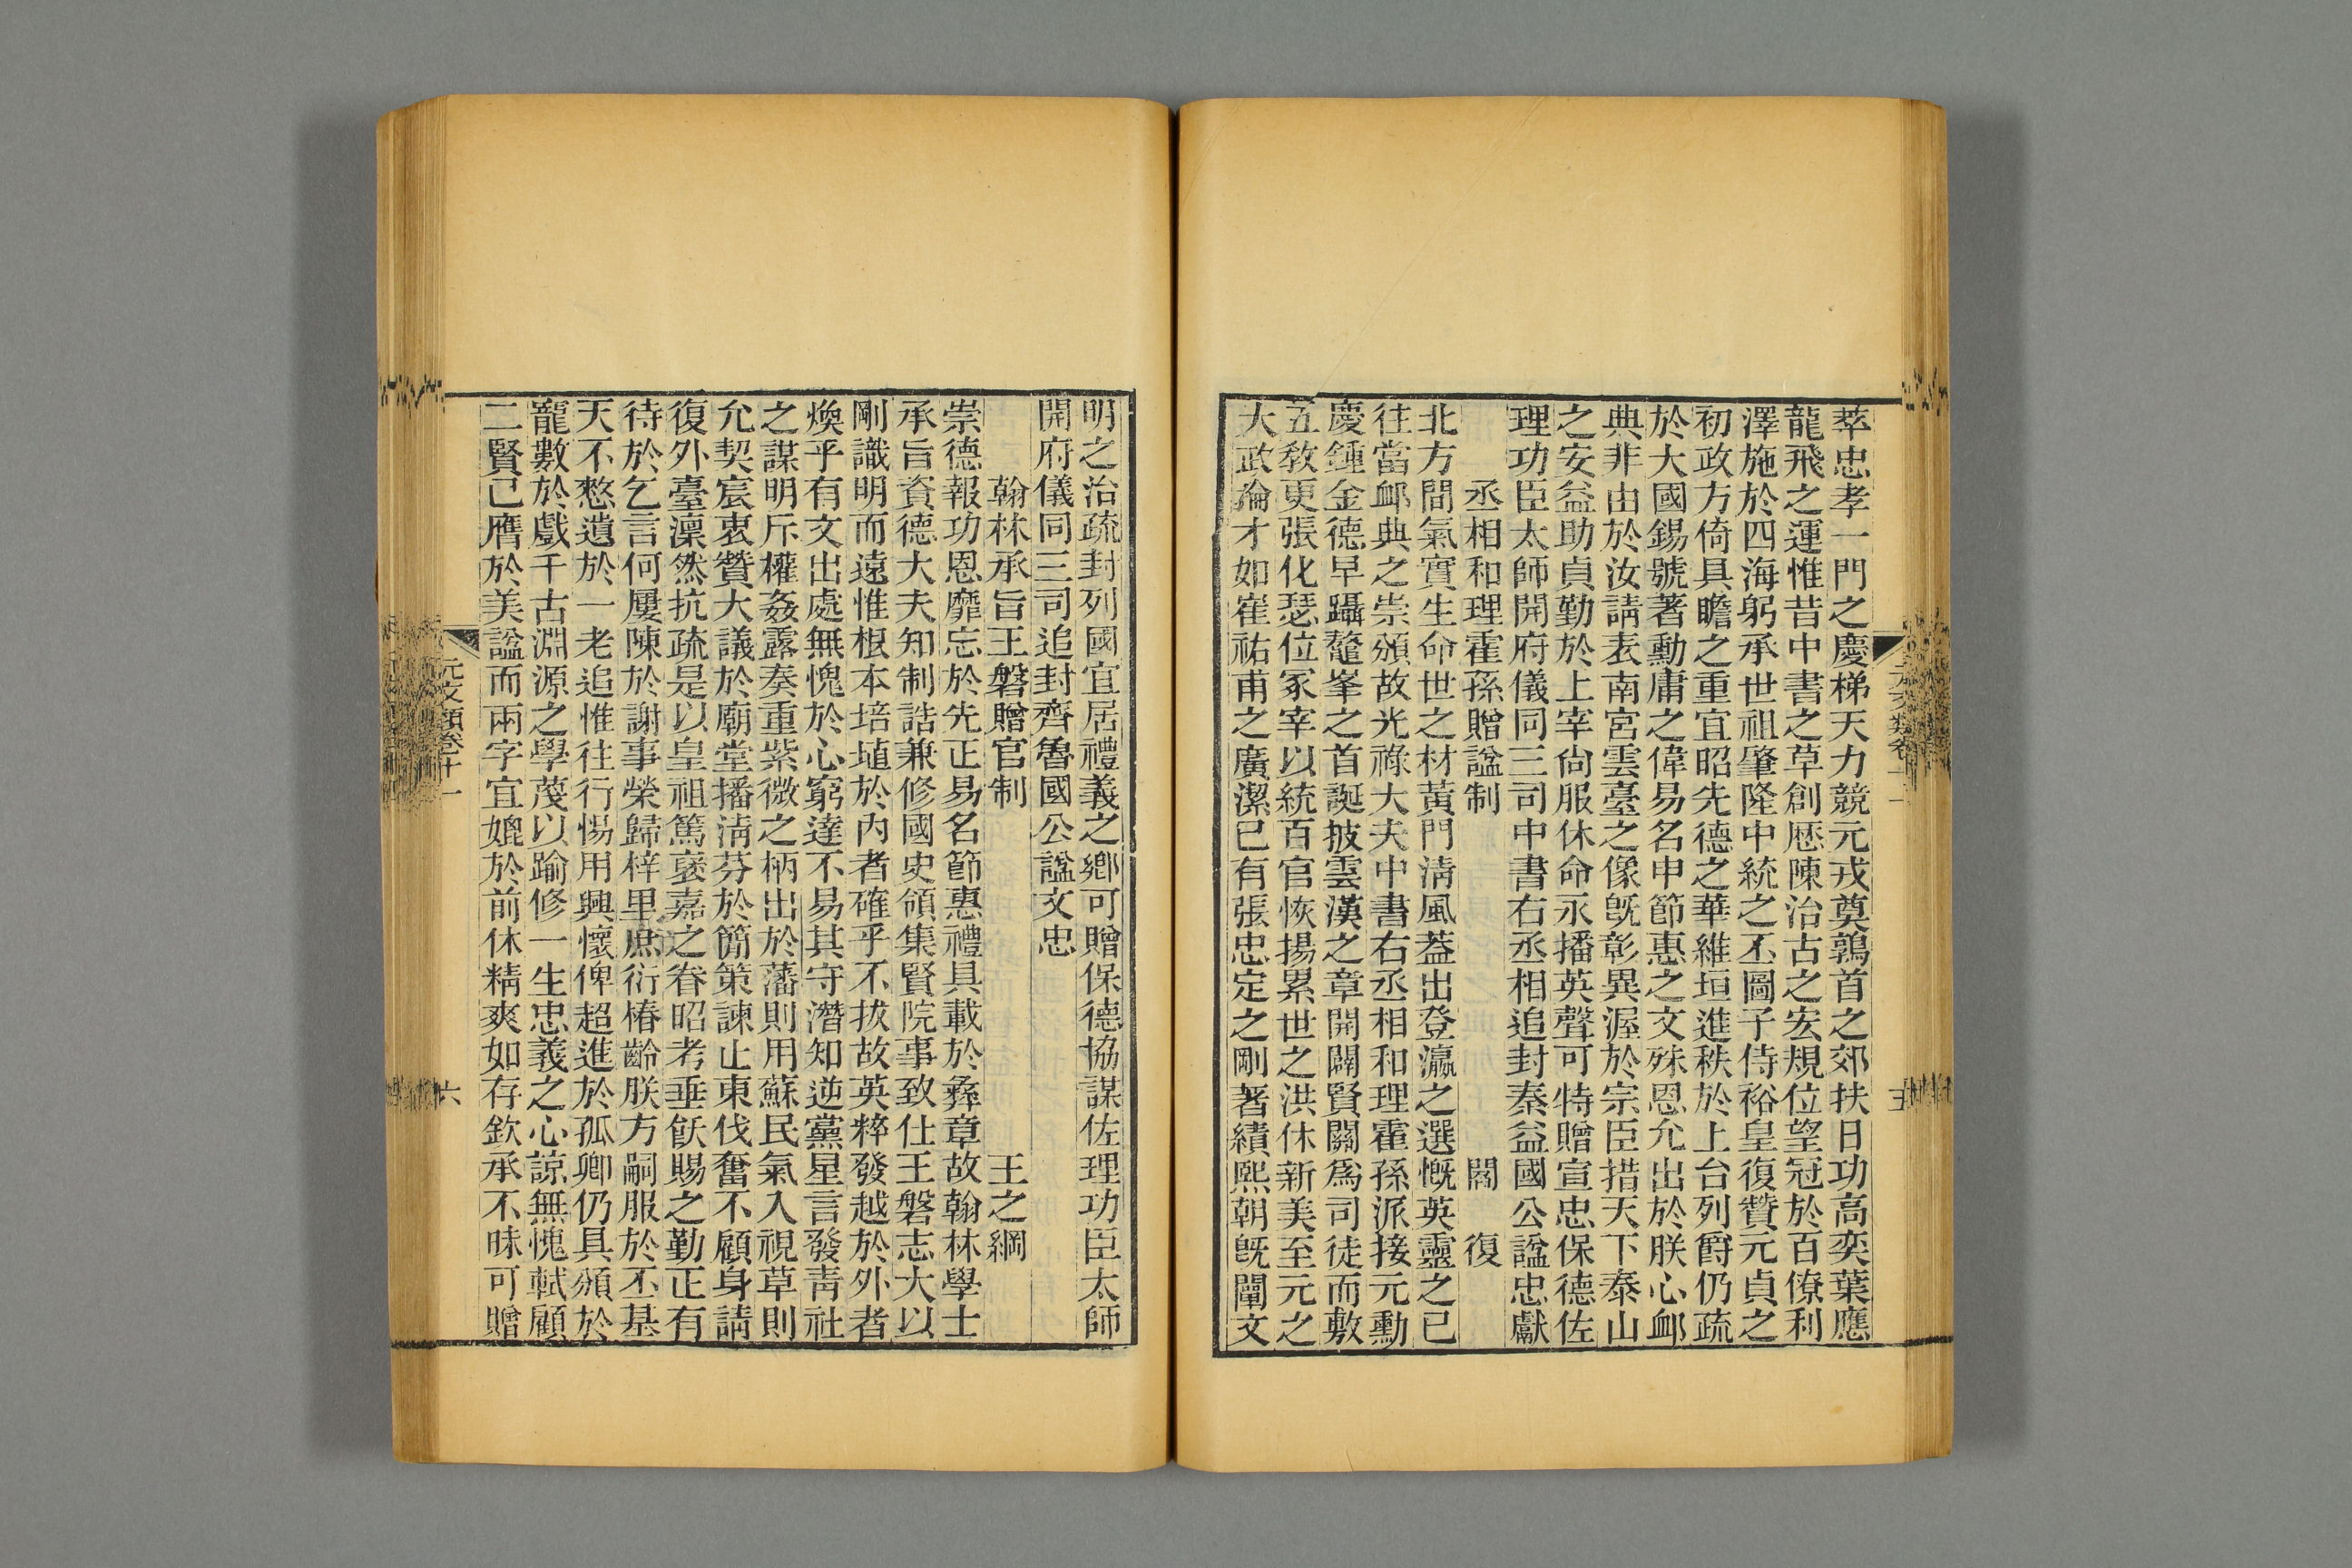 萃忠孝一門之慶梯天力競元戎奠鶉首之郊扶日功高奕葉應
龍飛之運惟昔中書之草創歴陳治古之宏規位望冠於百僚利
澤施於四海躬承世祖肇隆中統之丕圖子侍裕皇復贊元貞之
初政方倚具瞻之重宜昭先德之華維垣進秩於上台列爵仍疏
於大國錫號著勳庸之偉易名申節惠之文殊恩允出於朕心卹
典非由於汝請表南宮雲臺之像旣彰異渥於宗臣措天下泰山
之安益助貞勤於上宰尙服休命永播英聲可特贈宣忠保德佐
理功臣太師開府儀同三司中書右丞相追封秦益國公諡忠獻
丞相和理霍孫贈諡制 閻復
北方間氣實生命世之材黃門淸風葢出登瀛之選慨英靈之已
往當卹典之崇頒故光祿大夫中書右丞相和理霍孫派接元勳
慶鍾金德早躡鼇峯之首誕披雲漢之章開闢賢關爲司徒而敷
五敎更張化瑟位冢宰以統百官恢揚累世之洪休新美至元之
大政掄才如崔祐甫之廣潔已有張忠定之剛著績熙朝旣闡文
元文類卷十一
五
明之治疏封列國宜居禮義之鄉可贈保德協謀佐理功臣太師
開府儀同三司追封齊魯國公諡文忠
翰林承旨王磐贈官制 王之綱
崇德報功恩靡忘於先正易名節惠禮具載於彝章故翰林學士
承旨資德大夫知制誥兼修國史領集賢院事致仕王磐志大以
剛識明而遠惟根本培埴於內者確乎不拔故英粹發越於外者
煥乎有文出處無愧於心窮達不易其守潛知逆黨星言發靑社
之謀明斥權姦露奏重紫微之柄出於藩則用蘇民氣入視草則
允契宸衷贊大議於廟堂播淸芬於簡策諫止東伐奮不顧身請
復外臺凜然抗疏是以皇祖篤褒嘉之眷昭考垂飫賜之勤正有
待於乞言何屢陳於謝事榮歸梓里庶衍椿齡朕方嗣服於丕基
天不憖遺於一老追惟往行惕用興懷俾超進於孤卿仍具頒於
寵數於戲千古淵源之學蔑以踰修一生忠義之心諒無愧軾顧
二賢已膺於美諡而兩字宜媲於前休精爽如存欽承不昧可贈
元文類卷十一
六